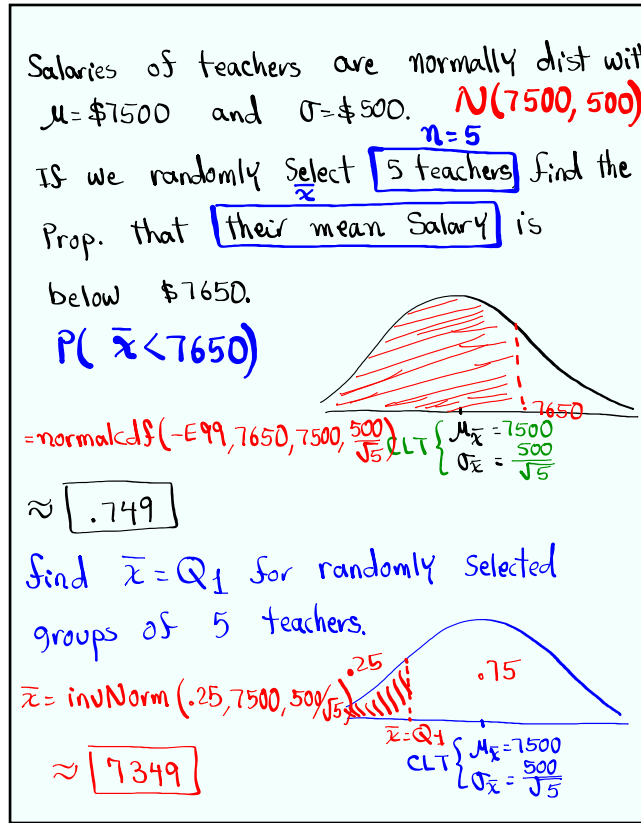 Salaries of teachers are normally dist with
μ=$7500 and σ=$500. N(7500, 500)
n=5
If we randomly Select 5 teachers find the
x̄
Prop. that their mean Salary is
below $7650.
P( x̄<7650)
7650
=normalcdf(-E99,7650,7500,500/√5) CLT { μx̄=7500
σx̄=500/√5
≈ .749
find x̄=Q1 for randomly Selected
groups of 5 teachers.
.25 .75
x̄= invNorm(.25,7500,500/√5)
x̄=Q1
CLT { μx̄=7500
σx̄=500/√5
≈ 7349